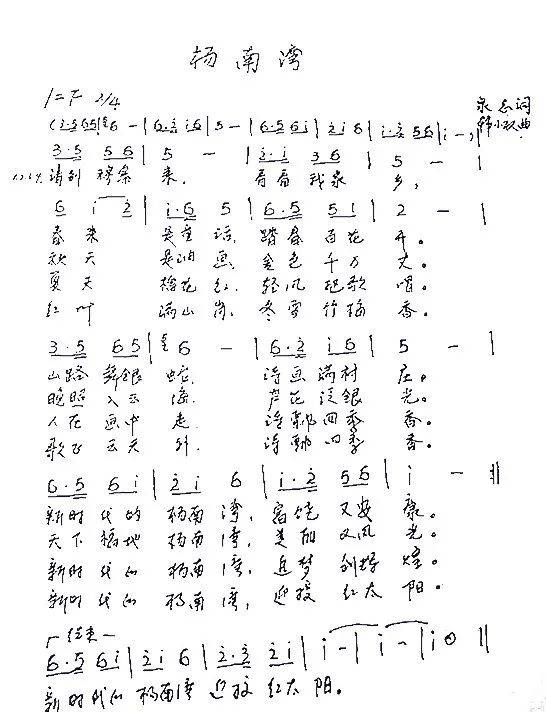 杨南湾
1=F 2/4
泉志词
韩小双曲
(i·5 65|6 - |6·2 i6|5 - |6·5 6i|2i6|i·2 56|i -)
3·5 56|5 - |2·i 36|5 - |
请到 来, 看看我家乡,
6 i 2|i·6 5|6·5 5i|2 - |
春来 是童话, 踏春百花开。
秋天 是油画, 金色千万
夏天 花红, 轻风把歌唱。
红叶 满山岗, 冬雪竹梅香。
3·5 65|6 - |6·2 i6|5 - |
山路舞银蛇, 诗画满村庄。
晚照入云海, 芦花泛银光。
人在画中走, 诗 四季香。
歌飞云天外, 诗 四季香。
6·5 6i|2i 6|i·2 56|i - ‖
新时代的杨南湾, 富饶又安康。
天下福地杨南湾, 美丽又风光。
新时代的杨南湾, 追梦创辉煌。
新时代的杨南湾, 迎接红太阳。
结束
6·5 6i|2i 6|2·3 2i|i -|i -|i 0‖
新时代的杨南湾迎接红太阳。